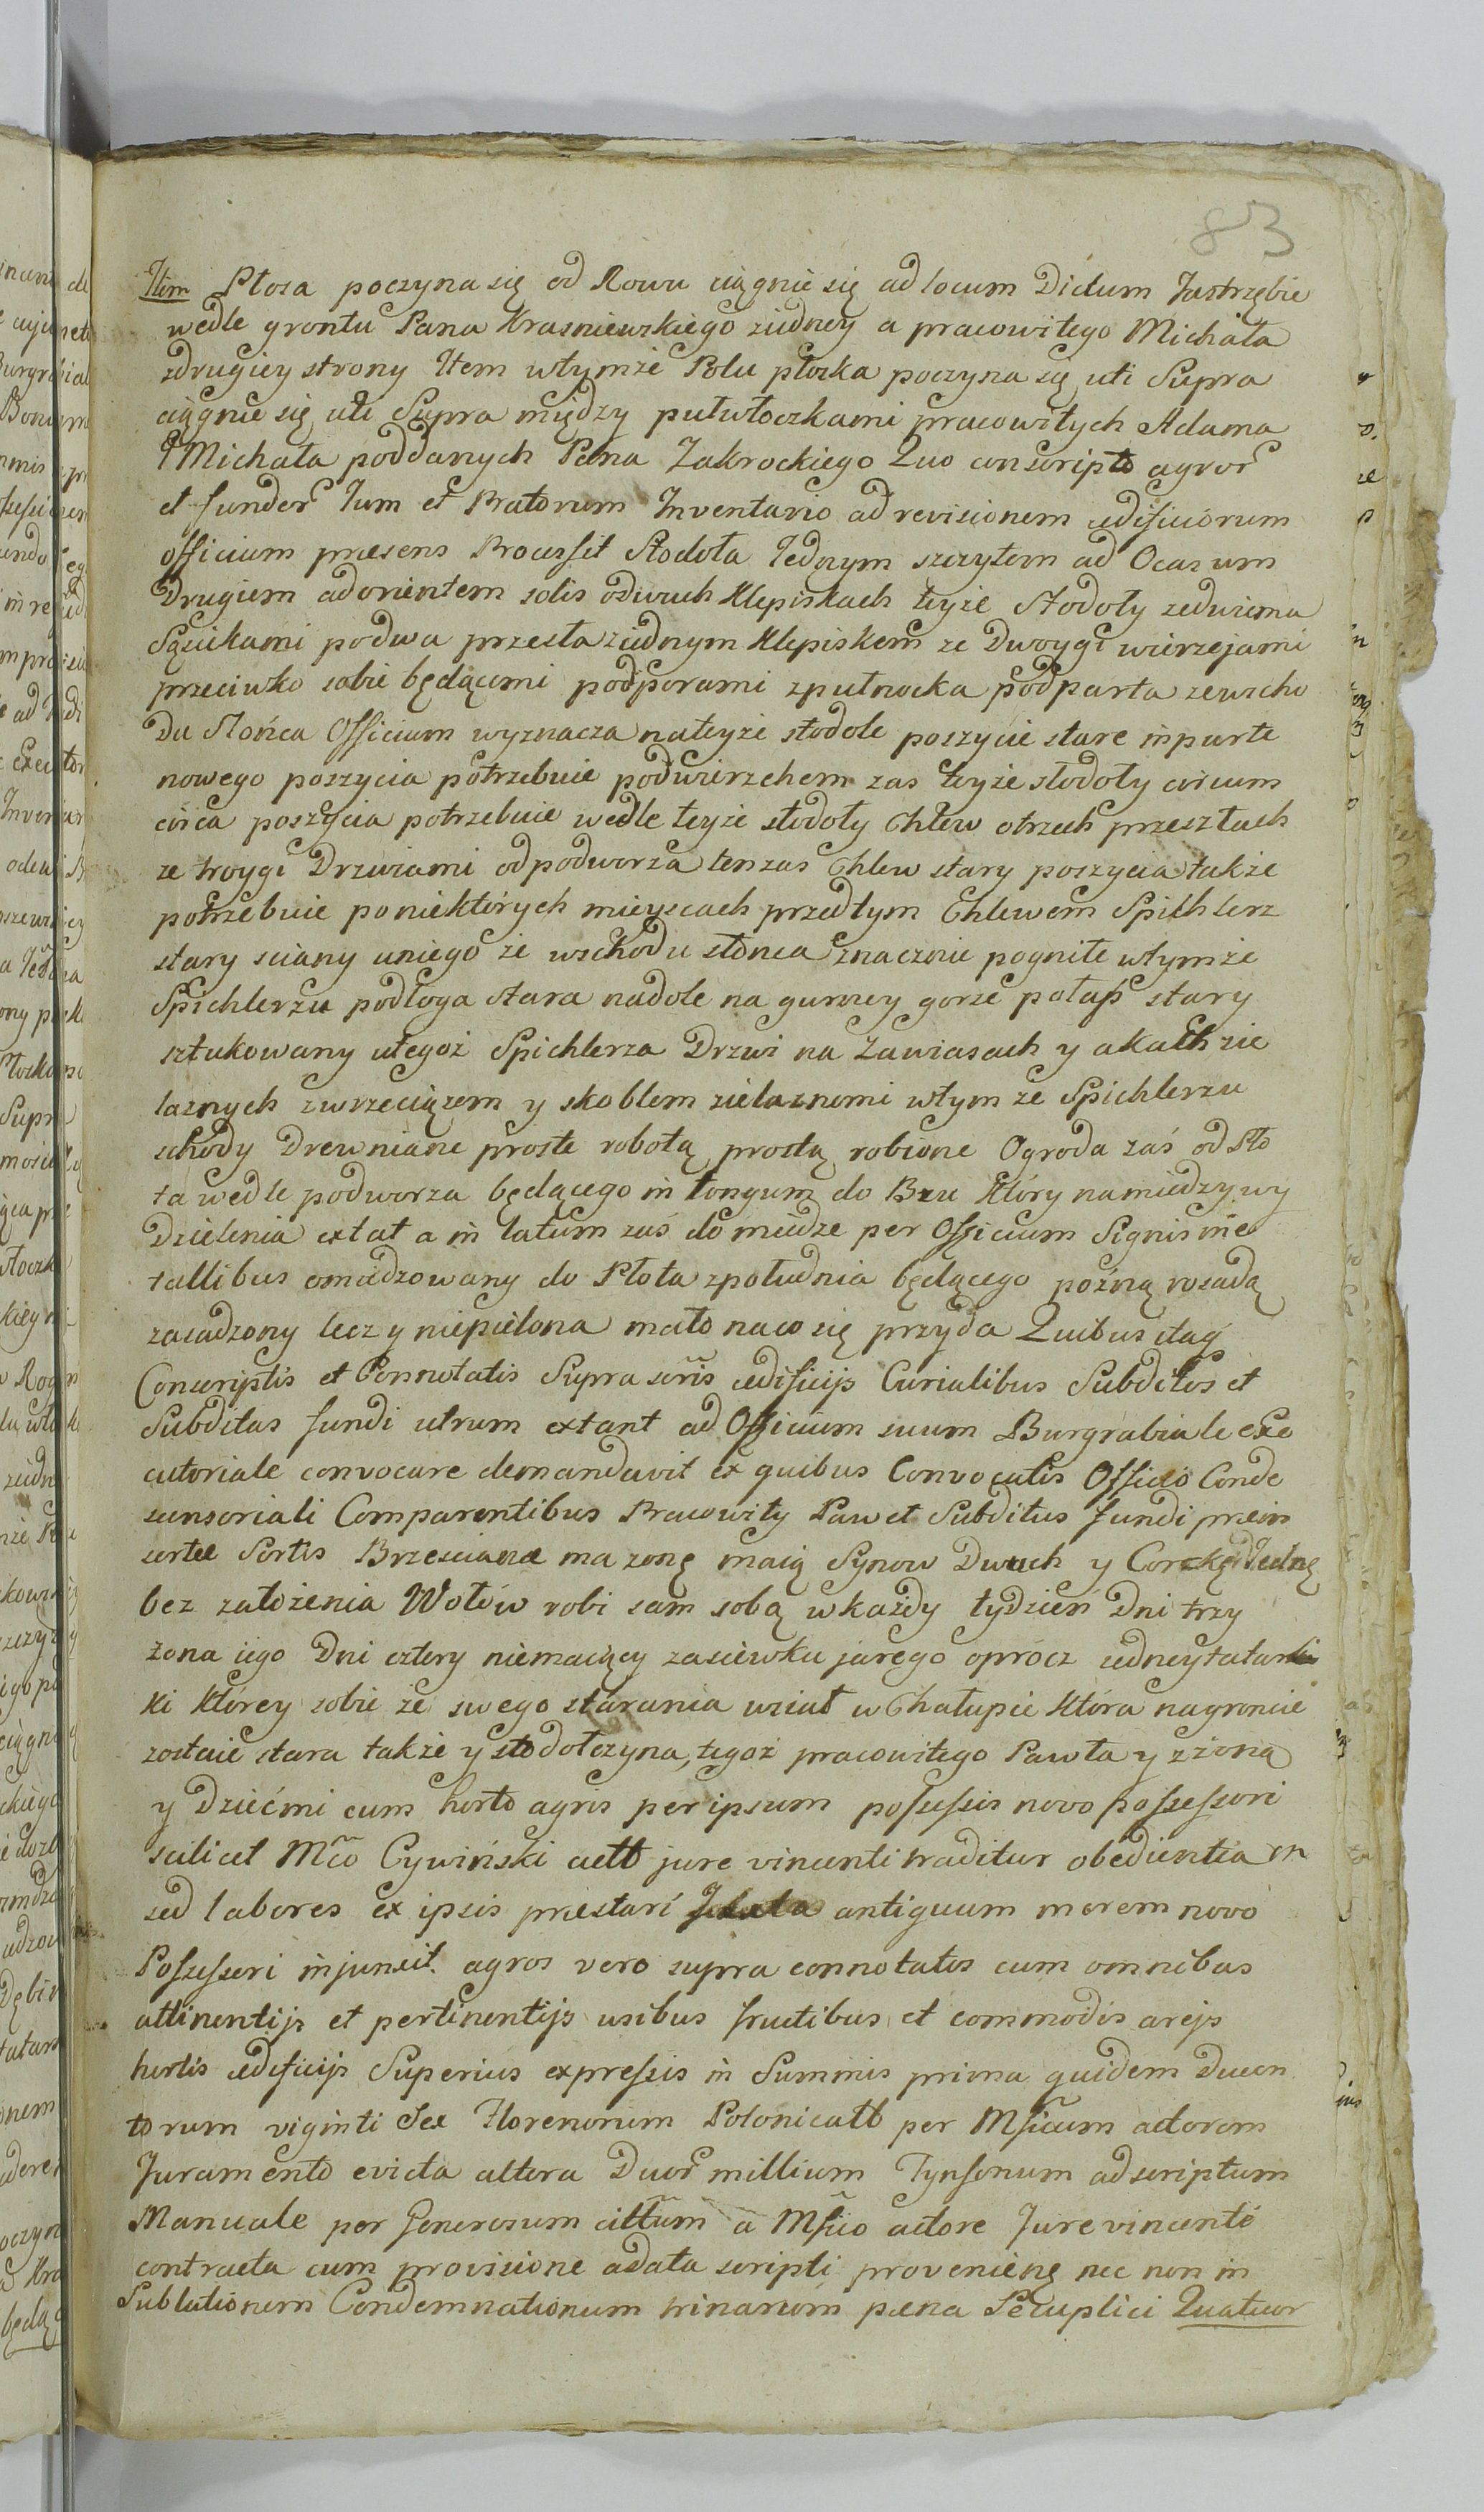 83
Item Płosa poczyna się od Rowu ciągnie się ad locum Dictum Jastrzębie
wedle grontu Pana Krasniewskiego ziedney a pracowitego Michała
zdrugiey strony Item wtymze Polu płoska poczyna się uti Supra
ciągnie się uti Supra między putwłoczkami pracowitych Adama
Michała poddanych Pana Zakrockiego Quo conscripto agror
et fundor Tum et Pratorum Inventario ad revisionem ædificiorum
officium præsens Processit Stodoła Jednym szczytem ad Ocasum
Drugiem ad orientem solis odwuch Klepiskach teyże Stodoły zedwiema
Sąsiekami podwa przesła ziednym Klepiskem ze Dwoygi wierzejami
przeciwko sobie będącemi podporami zputnocka podparta zewscho
Du Słońca Officium wyznacza nateyże stodole poszycie stare in parte
nowego poszycia potrzebuie podwierzchem zas teyże stodoły circum
circa poszycia potrzebuie wedle teyże stodoły Chlew otrzech przesztach
ze troygi Drzwiami odpodworza tenzas Chlew stary poszycia także
potrzebuie poniektórych mieyscach przedtym Chlewem Spichlerz
stary sciany uniego ze wschodu słonca znacznie pogniłe wtymże
Spichlerzu podłoga stara nadole na gurney gorze połap stary
sztukowany utegoż Spichlerza Drzwi na Zawiasach y akach zie
laznych zwrzeciązem y skoblem zielaznemi wtym ze Spichlerzu
schody Drewniane proste robotą prostą robione Ogroda zaś od Pło
ta wedle podworza będącego in longum do Bzu Który namiedzy wy
Dzielenia extat a in latum zaś do miedze per Officium Signis me
tallibus omiedzowany do Płota zpołudnia będącego poźną rosadą
zasadzony lecz y niepielona mało naco się przyda Quibus itaq
Conscriptis et Connotatis Supra scris ædificijs Curialibus Subditos et
Subditas fundi utrum extant ad Officium suum Burgrabiale exe
cutoriale convocare demandavit ex quibus Convocatis Officio Conde
scensoriali Comparentibus Pracowity Paweł Subditus fundi præin
sertæ Sortis Brzesciana ma zonę maią Synow Dwuch y Corckę Jedną
bez założenia Wołów robi sam sobą wkażdy tydzień Dni trzy
żona iego Dni cztery niemaiący zasiewku jarego oprócz iedneytatarki
ki którey sobie ze swego starania wziął w Chałupie która nagroncie
zostaie stara także y stodołczyna, tegoż pracowitego Pawła y zżoną
y Dziećmi cum horto agris per ipsum possessis novo possessori
scilicet Mco Cywiński actt jure vincenti traditur obedientia m
sed labores ex ipsis præstari antiquum morem novo
Possessori injunxit. agros vero supra connotatos cum omnibus
attinentijs et pertinentijs usibus fructibus et commodis arejs
hortis ædificijs Superius expressis in Summis prima quidem Ducen
torum viginti Sex Florenorum Polonicall per Mficum actorem
Juramento evicta altera Duor millium Tynfonum ad scriptum
Manuale per Generosum cittum a Mfico actore Jure vincenté
contracta cum provisione a data scripti provenienę nec non in
Sublationem Condemnationum trinarum pæna Sexuplici Quatuor